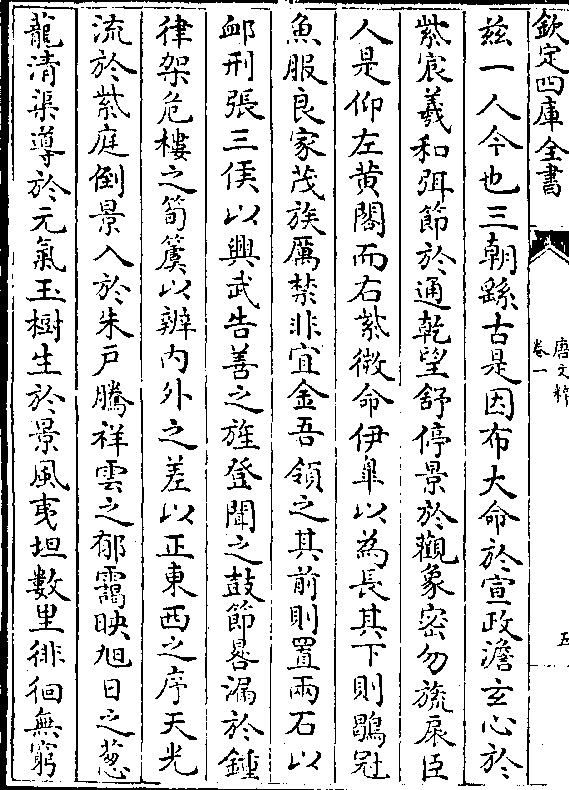 欽定四庫全書
唐文粹
卷一
五
兹一人今也三朝繇古是因布大命於宣政澹玄心於
紫宸羲和弭節於通乾望舒停景於觀象密勿旒扆臣
人是仰左黄閣而右紫微命伊臯以為長其下則鶡冠
魚服良家茂族厲禁非宜金吾領之其前則置兩石以
䘏刑張三侯以興武告善之旌登聞之鼓節晷漏於鍾
律架危樓之筍簴以辨内外之差以正東西之序天光
流於紫庭倒景入於朱戸騰祥雲之郁靄映旭日之葱
蘢清渠導於元氣玉樹生於景風夷坦數里徘徊無窮